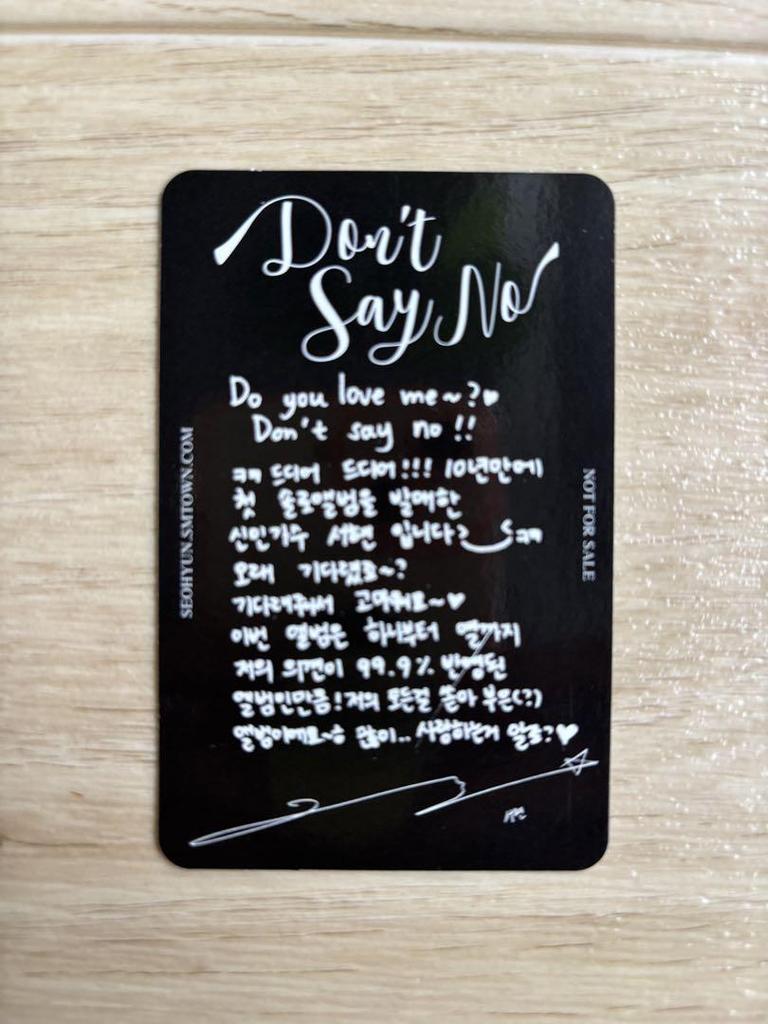 Don't
Say No
Do you love me~?♥
Don't say no!!
ㅋㅋ 드디어 드디어!!! 10년만에
첫 솔로앨범을 발매한
신인가수 서현 입니다? ㅋㅋ
오래 기다렸죠~?
기다려줘서 고마워요~♥
이번 앨범은 하나부터 열까지
저의 의견이 99.9% 반영된
앨범인만큼! 저의 모든걸 쏟아 부은(?)
앨범이에요~ㅎ 많이.. 사랑하는거 알죠?♥
서현
SEOHYUN.SMTOWN.COM
NOT FOR SALE